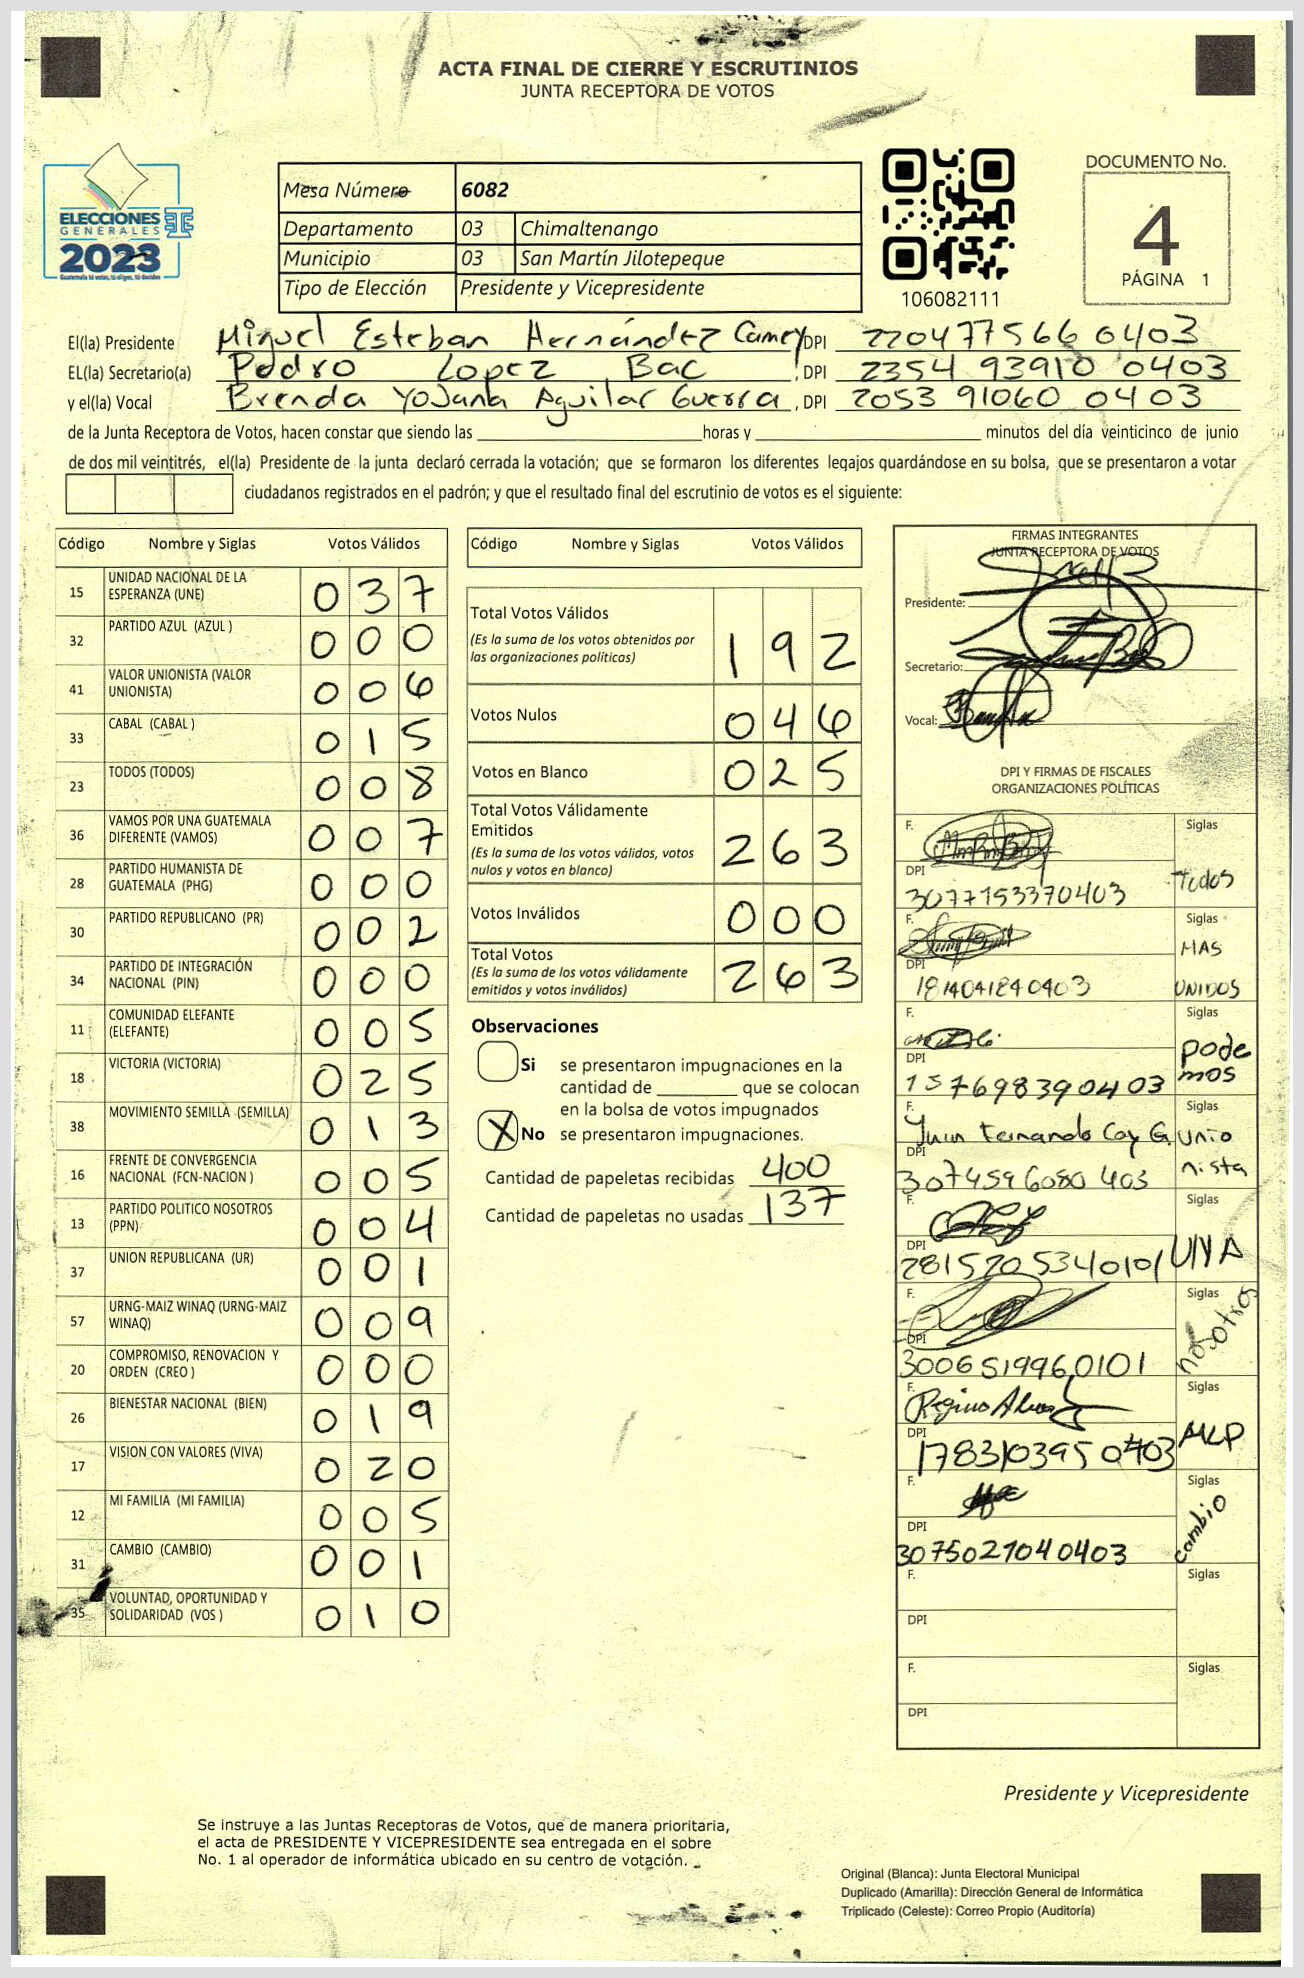 ACTA FINAL DE CIERRE Y ESCRUTINIOS
JUNTA RECEPTORA DE VOTOS
ELECCIONES
GENERALES
2023
Guatemala tú votas, tú eliges, tú decides
Mesa Número 6082
Departamento 03 Chimaltenango
Municipio 03 San Martín Jilotepeque
Tipo de Elección Presidente y Vicepresidente
106082111
DOCUMENTO No.
4
PÁGINA 1
El(la) Presidente Miguel Esteban Hernández Camey DPI 220477566 0403
EL(la) Secretario(a) Pedro Lopez Bac , DPI 2354 93910 0403
y el(la) Vocal Brenda Yojana Aguilar Guerra , DPI 2053 91060 0403
de la Junta Receptora de Votos, hacen constar que siendo las horas y minutos del día veinticinco de junio
de dos mil veintitrés, el(la) Presidente de la junta declaró cerrada la votación; que se formaron los diferentes legajos guardándose en su bolsa, que se presentaron a votar
ciudadanos registrados en el padrón; y que el resultado final del escrutinio de votos es el siguiente:
Código Nombre y Siglas Votos Válidos
15 UNIDAD NACIONAL DE LA ESPERANZA (UNE) 037
32 PARTIDO AZUL (AZUL ) 000
41 VALOR UNIONISTA (VALOR UNIONISTA) 006
33 CABAL (CABAL ) 015
23 TODOS (TODOS) 008
36 VAMOS POR UNA GUATEMALA DIFERENTE (VAMOS) 007
28 PARTIDO HUMANISTA DE GUATEMALA (PHG) 000
30 PARTIDO REPUBLICANO (PR) 002
34 PARTIDO DE INTEGRACIÓN NACIONAL (PIN) 000
11 COMUNIDAD ELEFANTE (ELEFANTE) 005
18 VICTORIA (VICTORIA) 025
38 MOVIMIENTO SEMILLA (SEMILLA) 013
16 FRENTE DE CONVERGENCIA NACIONAL (FCN-NACION ) 005
13 PARTIDO POLITICO NOSOTROS (PPN) 004
37 UNION REPUBLICANA (UR) 001
57 URNG-MAIZ WINAQ (URNG-MAIZ WINAQ) 009
20 COMPROMISO, RENOVACION Y ORDEN (CREO ) 000
26 BIENESTAR NACIONAL (BIEN) 019
17 VISION CON VALORES (VIVA) 020
12 MI FAMILIA (MI FAMILIA) 005
31 CAMBIO (CAMBIO) 001
35 VOLUNTAD, OPORTUNIDAD Y SOLIDARIDAD (VOS ) 010
Código Nombre y Siglas Votos Válidos
Total Votos Válidos
(Es la suma de los votos obtenidos por las organizaciones políticas) 192
Votos Nulos 046
Votos en Blanco 025
Total Votos Válidamente Emitidos
(Es la suma de los votos válidos, votos nulos y votos en blanco) 263
Votos Inválidos 000
Total Votos
(Es la suma de los votos válidamente emitidos y votos inválidos) 263
Observaciones
Si se presentaron impugnaciones en la
cantidad de que se colocan
en la bolsa de votos impugnados
X No se presentaron impugnaciones.
Cantidad de papeletas recibidas 400
Cantidad de papeletas no usadas 137
FIRMAS INTEGRANTES
JUNTA RECEPTORA DE VOTOS
Presidente:
Secretario:
Vocal:
DPI Y FIRMAS DE FISCALES
ORGANIZACIONES POLÍTICAS
F. Siglas
DPI 3077153370403 Todos
F. Siglas
DPI 1814041840403 MAS UNIDOS
F. Siglas
DPI 157698390403 podemos
F. Juan Fernando Coy G. Siglas
DPI 3074596080 403 Unionista
F. Siglas
DPI 2815205340101 UNA
F. Siglas
DPI 3006519960101 nosotros
F. Regino Siglas
DPI 1783103950403 MLP
F. Siglas
DPI 3075021040403 cambio
F. Siglas
DPI
F. Siglas
DPI
Presidente y Vicepresidente
Se instruye a las Juntas Receptoras de Votos, que de manera prioritaria,
el acta de PRESIDENTE Y VICEPRESIDENTE sea entregada en el sobre
No. 1 al operador de informática ubicado en su centro de votación.
Original (Blanca): Junta Electoral Municipal
Duplicado (Amarilla): Dirección General de Informática
Triplicado (Celeste): Correo Propio (Auditoría)